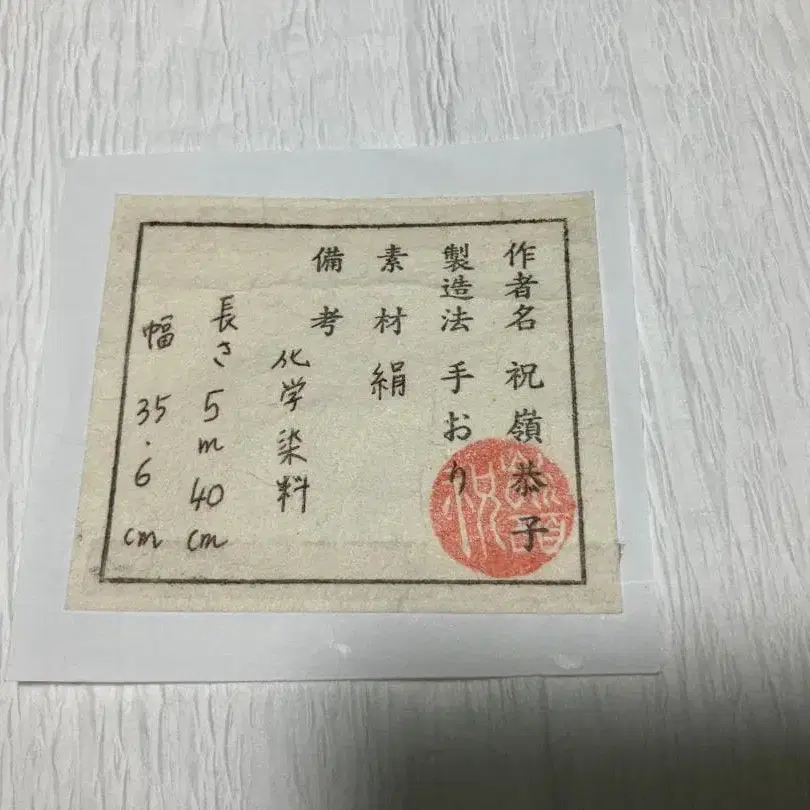 作者名 祝嶺恭子
製造法 手おり
素材 絹
備考
化学染料
長さ 5m40cm
幅 35.6cm
祝嶺